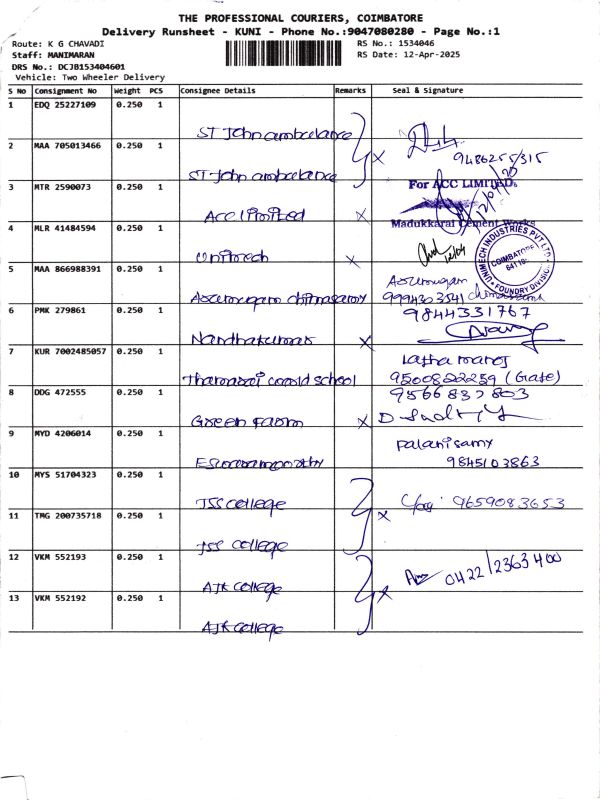 THE PROFESSIONAL COURIERS, COIMBATORE
Delivery Runsheet - KUNI - Phone No.:9047080280 - Page No.:1
Route: K G CHAVADI
RS No.: 1534046
Staff: MANIMARAN
RS Date: 12-Apr-2025
DRS No.: DCJB153404601
Vehicle: Two Wheeler Delivery
S No Consignment No Weight PCS Consignee Details Remarks Seal & Signature
1 EDQ 25227109 0.250 1
ST John ambulance
9486255/315
2 MAA 705013466 0.250 1
ST John ambulance
3 MTR 2590073 0.250 1
For ACC LIMITED.
12/04/20
ACC limited x
Madukkarai Cement Works
4 MLR 41484594 0.250 1
Unitech x
12/04
UNIMECH INDUSTRIES PVT LTD
COIMBATORE
FOUNDRY DIVISION
5 MAA 866988391 0.250 1
Arumugam chinnasamy
Arumugam
9994303541 chinnasamy
6 PMK 279861 0.250 1
9844331767
Nandhakumar x
7 KUR 7002485057 0.250 1
Latha manoj
Thamarai world school
9500822259 (Gate)
8 DDG 472555 0.250 1
9566837803
Green farm x
9 MYD 4206014 0.250 1
Palanisamy
9845103863
10 MYS 51704323 0.250 1
JSS college
x 9659083653
11 TMG 200735718 0.250 1
JSS college
12 VKM 552193 0.250 1
AJK college
x 0422/2363400
13 VKM 552192 0.250 1
AJK college